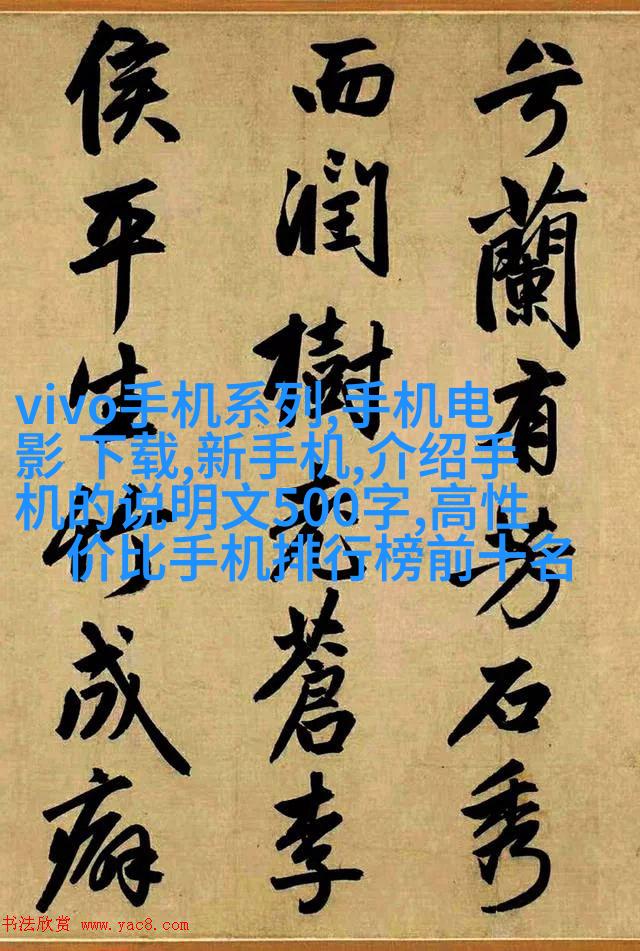 兮蘭有芳石秀
而潤樹蒼李
侯平生竹成癖
vivo手机系列,手机电
影 下载,新手机,介绍手
机的说明文500字,高性
价比手机排行榜前十名
书法欣赏 www.yac8.com